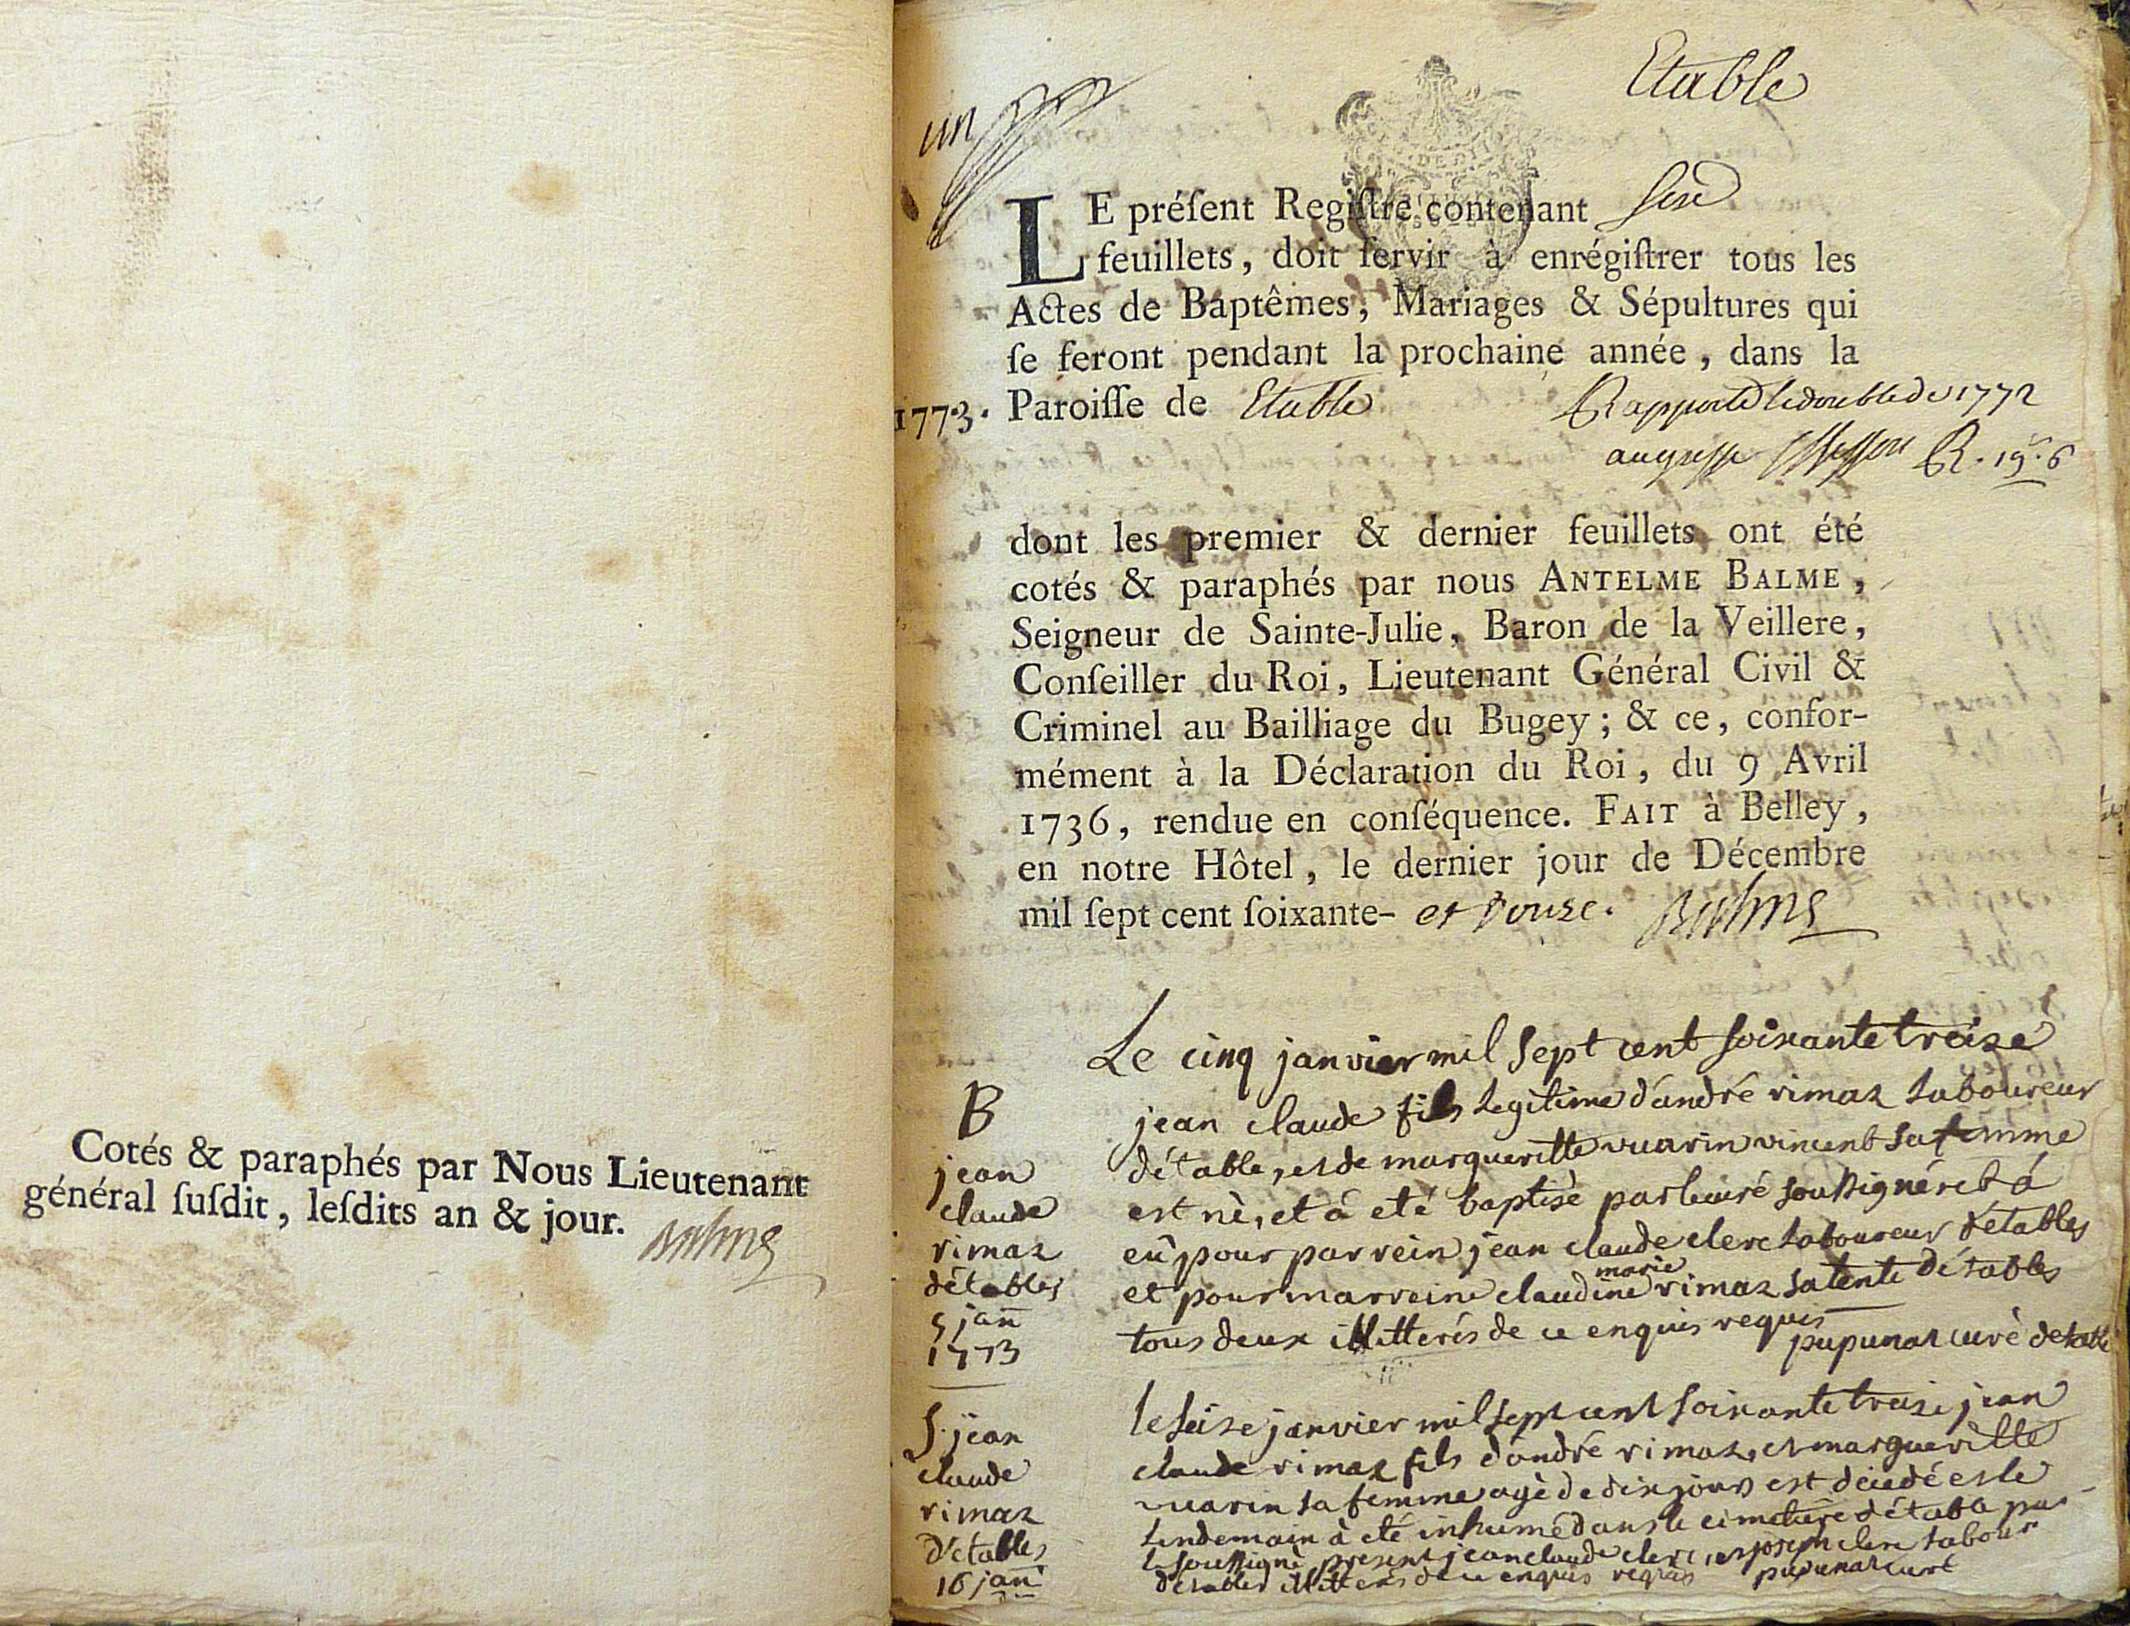 Cotés & paraphés par Nous Lieutenant
général ſuſdit, leſdits an & jour.
Balme
Etable
un
LE préſent Regiſtre contenant ſixe
feuillets, doit ſervir à enrégiſtrer tous les
Actes de Baptêmes, Mariages & Sépultures qui
ſe feront pendant la prochaine année, dans la
1773. Paroiſſe de Etable
Rapporté le double de 1772
au greffe
dont les premier & dernier feuillets ont été
cotés & paraphés par nous ANTELME BALME,
Seigneur de Sainte-Julie, Baron de la Veillere,
Conſeiller du Roi, Lieutenant Général Civil &
Criminel au Bailliage du Bugey; & ce, confor-
mément à la Déclaration du Roi, du 9 Avril
1736, rendue en conſéquence. FAIT à Belley,
en notre Hôtel, le dernier jour de Décembre
mil ſept cent ſoixante- et douze. Balme
B
jean
claude
rimaz
détables
5 jan
1773
Le cinq janvier mil sept cent soixante treize
jean claude fils legitime d'andré rimaz laboureur
détable, et de margueritte vuarin vincent sa femme
est né, et à eté baptisé par le curé soussigné et à
eû pour parrein jean claude clerc laboureur détables
et pour marreine claudine marie rimaz sa tente détables
tous deux illitterés de ce enquis requis
pupunat curé detable
S. jean
claude
rimaz
détables
16 jan
le seize janvier mil sept cent soixante treize jean
claude rimaz fils d'andré rimaz, et margueritte
vuarin sa femme agé de dix jours est décedé et le
lendemain à eté inhumé dans le cimetière détable par
le soussigné, present jean claude clerc, et joseph clerc labour
détables illitterés de ce enquis requis pupunat curé